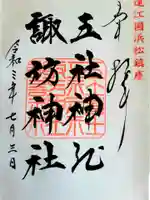 遠江國浜松鎮座
奉拝
五社神社
諏訪神社
令和三年七月三日